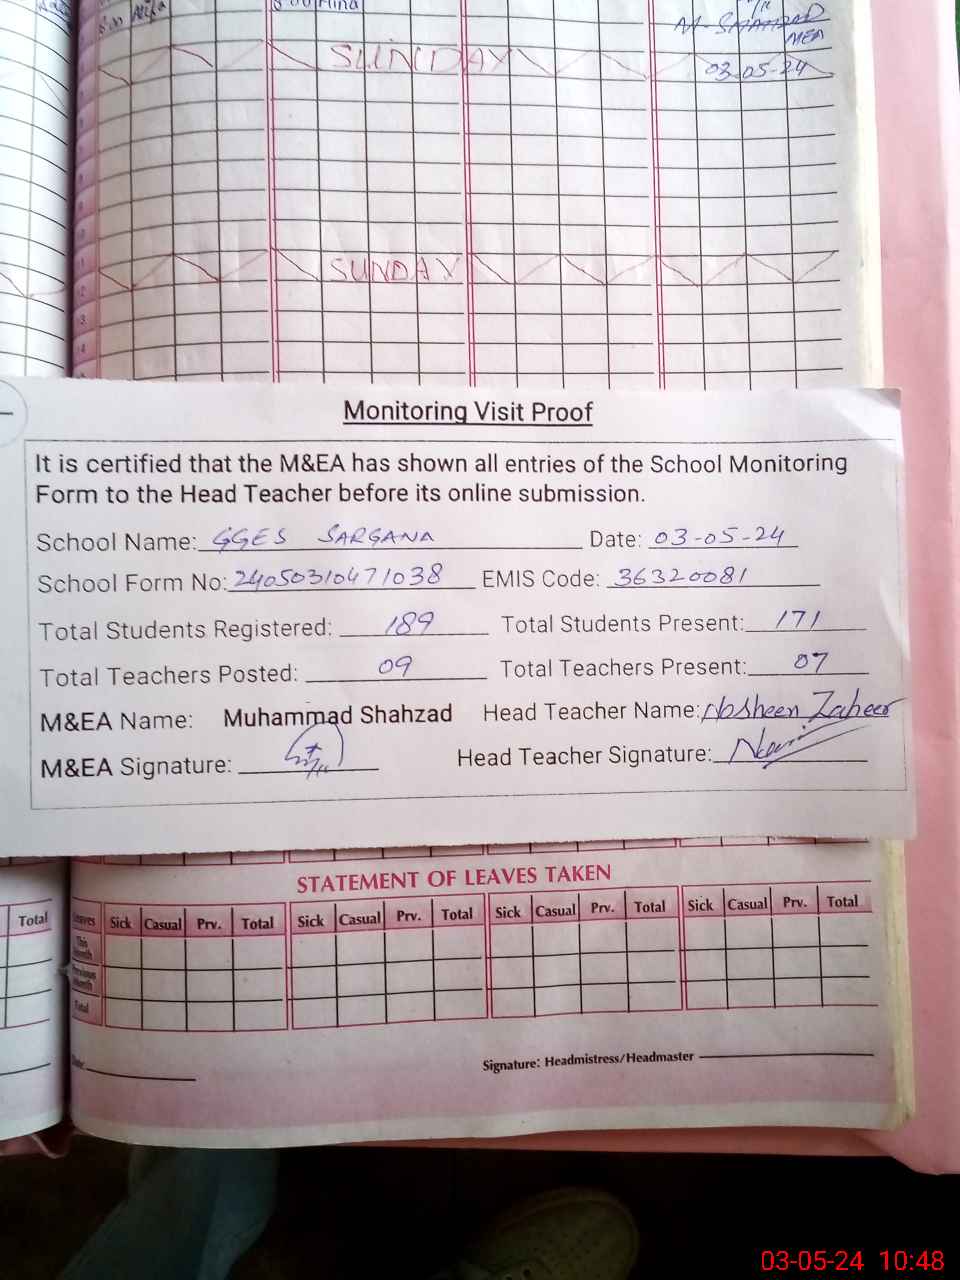 8:00 Hina
M. SHAHZAD
MEA
03-05-24
SUNDAY
SUNDAY
Monitoring Visit Proof
It is certified that the M&EA has shown all entries of the School Monitoring
Form to the Head Teacher before its online submission.
School Name: GGES SARGANA Date: 03-05-24
School Form No: 24050310471038 EMIS Code: 36320081
Total Students Registered: 189 Total Students Present: 171
Total Teachers Posted: 09 Total Teachers Present: 07
M&EA Name: Muhammad Shahzad Head Teacher Name: Nosheen Zaheer
M&EA Signature: Head Teacher Signature:
STATEMENT OF LEAVES TAKEN
Total Leaves Sick Casual Prv. Total Sick Casual Prv. Total Sick Casual Prv. Total Sick Casual Prv. Total
This Month
Previous Month
Total
Signature: Headmistress/Headmaster
03-05-24 10:48